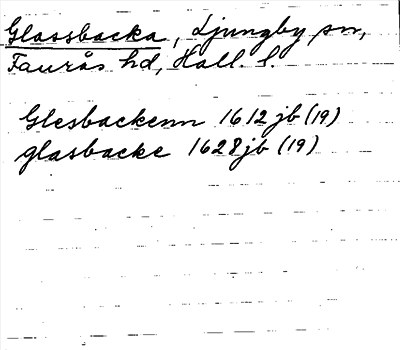 Glassbacka, Ljungby sn,
Faurås hd, Hall. l.
Glesbackenn 1612 jb (19)
glasbacke 1628 jb (19)